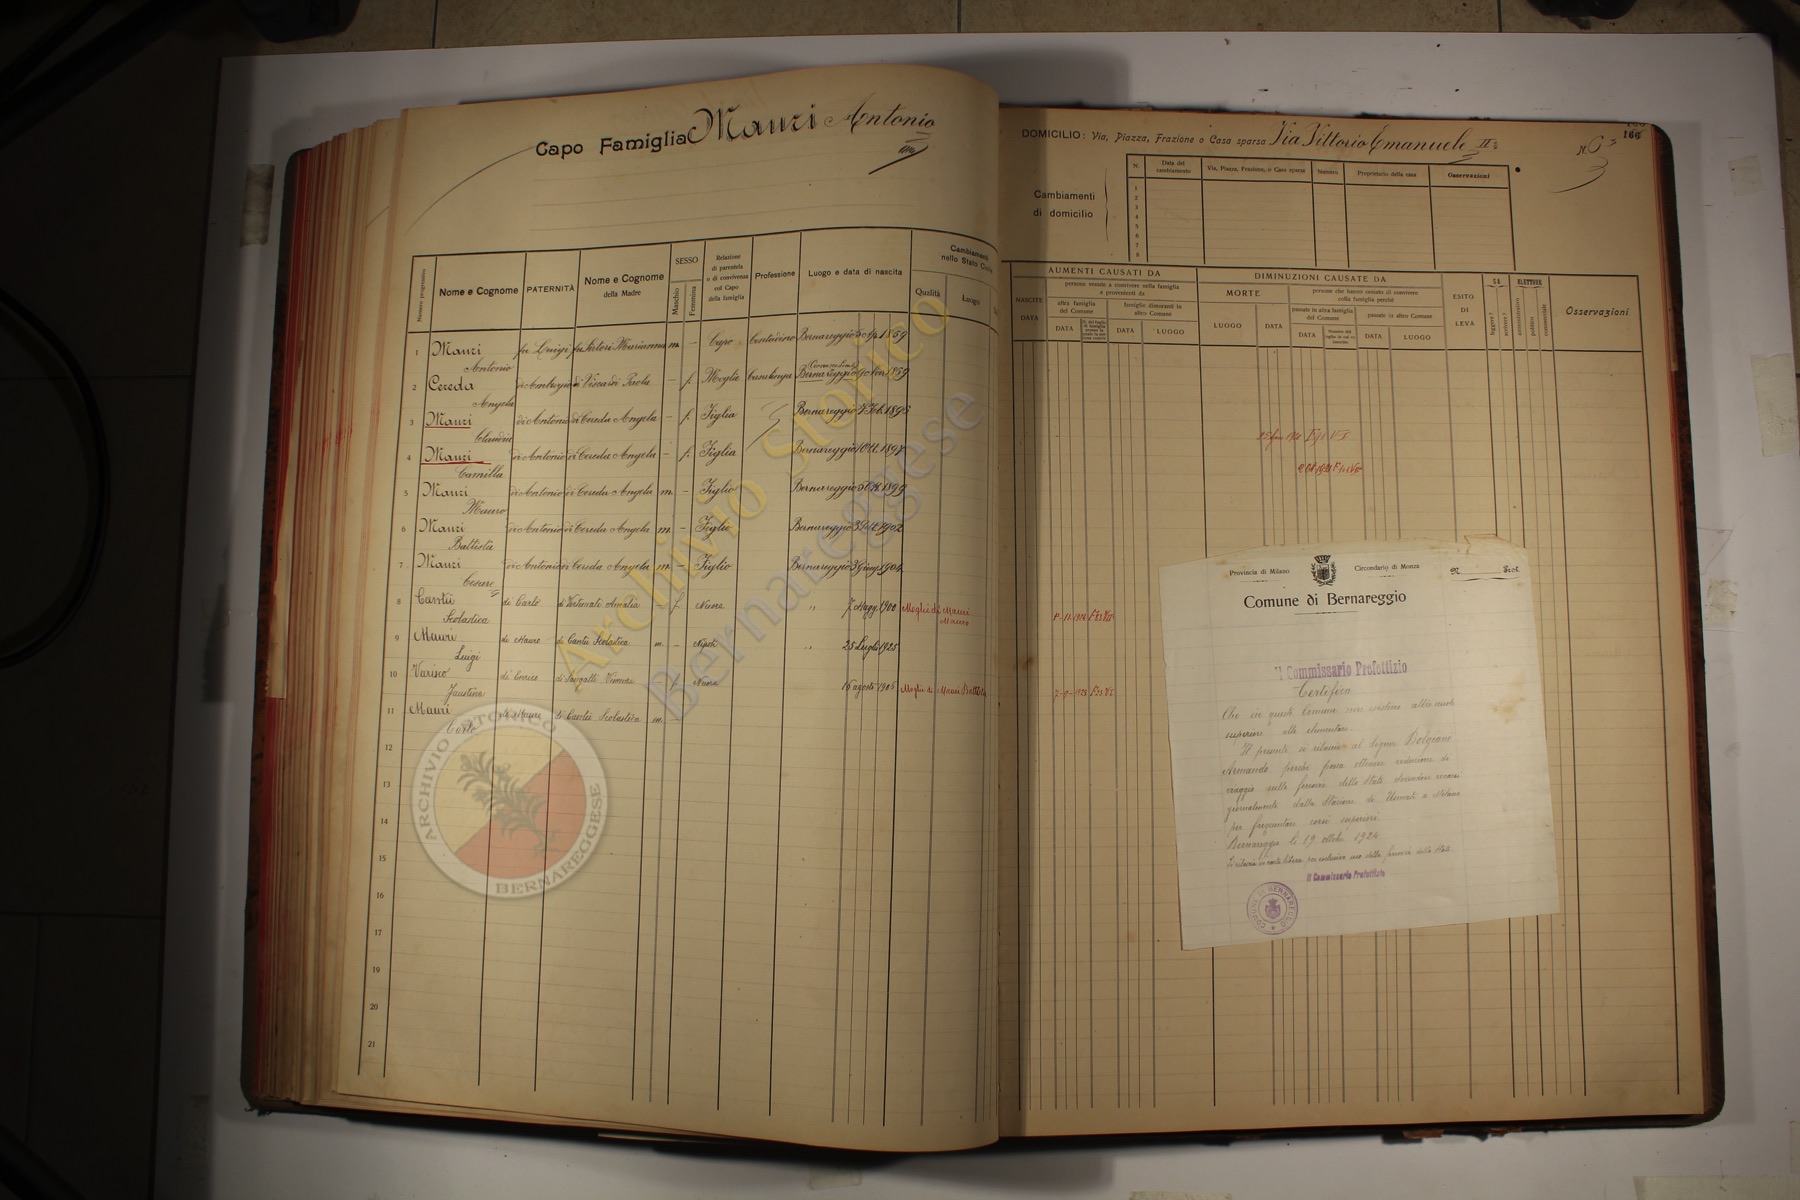 Capo Famiglia Mauri Antonio
DOMICILIO: Via, Piazza, Frazione o Casa sparsa Via Vittorio Emanuele II
N. 63
166
Cambiamenti
di domicilio
N. Data del cambiamento Via, Piazza, Frazione, o Casa sparsa Numero Proprietario della casa Osservazioni
1
2
3
4
5
6
7
8
Numero progressivo
Nome e Cognome
PATERNITÀ
Nome e Cognome
della Madre
SESSO
Maschio Femmina
Relazione
di parentela
o di convivenza
col Capo
della famiglia
Professione
Luogo e data di nascita
Cambiamenti
nello Stato Civile
Qualità Luogo
NASCITE
DATA
AUMENTI CAUSATI DA
persone venute a convivere nella famiglia
e provenienti da
altra famiglia
del Comune
famiglie dimoranti in
altro Comune
DATA DATA LUOGO
DIMINUZIONI CAUSATE DA
MORTE
LUOGO DATA
persone che hanno cessato di convivere
colla famiglia perchè
passate in altra famiglia
del Comune
passate in altro Comune
DATA DATA LUOGO
ESITO
DI
LEVA
SA
leggere? scrivere?
ELETTORE
amministrativo politico commerciale
Osservazioni
1 Mauri Antonio fu Luigi fu Sartori Marianna m. – Capo Contadino Bernareggio 1859
2 Cereda Angela di Ambrogio di Viscardi Paola – f. Moglie Casalinga Bernareggio 1859
3 Mauri Claudia di Antonio di Cereda Angela – f. Figlia Bernareggio
25 1921
4 Mauri Camilla di Antonio di Cereda Angela – f. Figlia Bernareggio 1897
1921
5 Mauri Mauro di Antonio di Cereda Angela m. – Figlio Bernareggio 1899
6 Mauri Battista di Antonio di Cereda Angela m. – Figlio Bernareggio 1902
7 Mauri Cesare di Antonio di Cereda Angela m. – Figlio Bernareggio 3 Giug. 1904
8 Cantù Scolastica di Carlo di Amalia f. Nuora " 7 Magg. 1900 Moglie di Mauri Mauro
9 Mauri Luigi di Mauro di Cantù Scolastica m. – Nipote " 25 Luglio 1925
10 Varisco Faustina di Enrico f. Nuora 16 agosto 1905 Moglie di Mauri Battista
11 Mauri Carlo di Mauro di Cantù Scolastica m.
12
13
14
15
16
17
19
20
21
Provincia di Milano Circondario di Monza N. Prot.
Comune di Bernareggio
Il Commissario Prefettizio
Certifica
Che in questo Comune non esistono altre scuole
superiori alle elementari.
Il presente si rilascia al Signor Bolgiani
Armando perchè possa ottenere riduzione di
viaggio sulle ferrovie dello Stato dovendosi recare
giornalmente dalla Stazione di Usmate a Milano
per frequentare corsi superiori.
Bernareggio li 19 ottobre 1924
Si rilascia in carta libera per esclusivo uso delle ferrovie dello Stato.
Il Commissario Prefettizio
COMUNE DI BERNAREGGIO
Archivio Storico
Bernareggese
ARCHIVIO STORICO
BERNAREGGESE